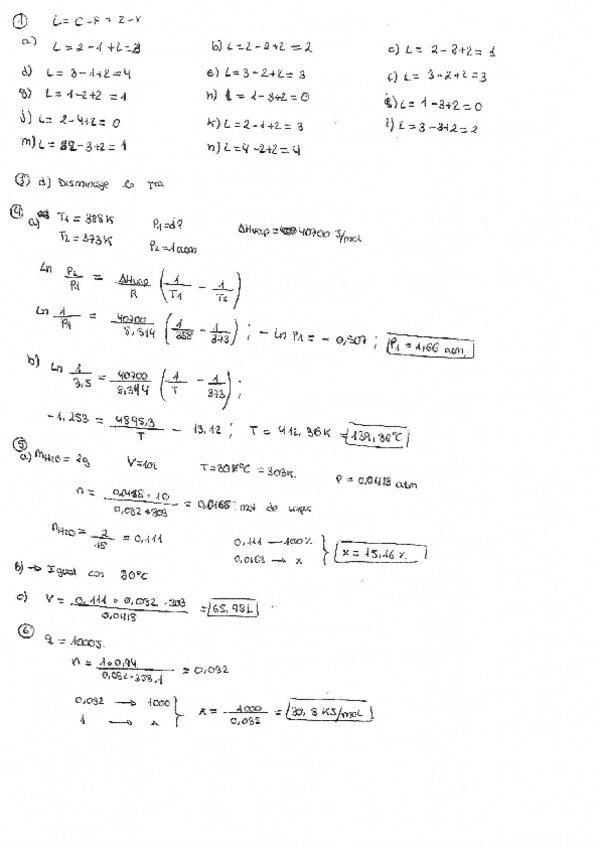 ① L = C - F + 2 - r
a) L = 2 - 1 + 2 = 3 b) L = 2 - 2 + 2 = 2 c) L = 2 - 3 + 2 = 1
d) L = 3 - 1 + 2 = 4 e) L = 3 - 2 + 2 = 3 f) L = 3 - 2 + 2 = 3
g) L = 1 - 2 + 2 = 1 h) L = 1 - 3 + 2 = 0 i) L = 1 - 3 + 2 = 0
j) L = 2 - 4 + 2 = 0 k) L = 2 - 1 + 2 = 3 l) L = 3 - 3 + 2 = 2
m) L = 2 - 3 + 2 = 1 n) L = 4 - 2 + 2 = 4
③ d) Disminuye
④ a) T1 = 388K P1 = ¿? ΔHvap = 40700 J/mol
T2 = 373K P2 = 1 atm
Ln P2/P1 = ΔHvap/R (1/T1 - 1/T2)
Ln 1/P1 = 40700/8,314 (1/388 - 1/373) ; - Ln P1 = - 0,507 ; P1 = 1,66 atm
b) Ln 1/3,5 = 40700/8,314 (1/T - 1/373) ;
-1,253 = 4895,3/T - 13,12 ; T = 412,36K = 139,36ºC
⑤ a) mH2O = 2g V = 10L T = 30ºC = 303K. P = 0,0418 atm
n = 0,0418 · 10 / 0,082 · 303 = 0,0168 mol de vapor
nH2O = 2/18 = 0,111 0,111 → 100%
0,0168 → x x = 15,16%
b) → Igual con 30ºC
c) V = 0,111 · 0,082 · 303 / 0,0418 = 65,98L
⑥ q = 1000J.
n = 1 · 0,94 / 0,082 · 358,1 = 0,032
0,032 → 1000
1 → x x = 1000/0,032 = 30,8 KJ/mol